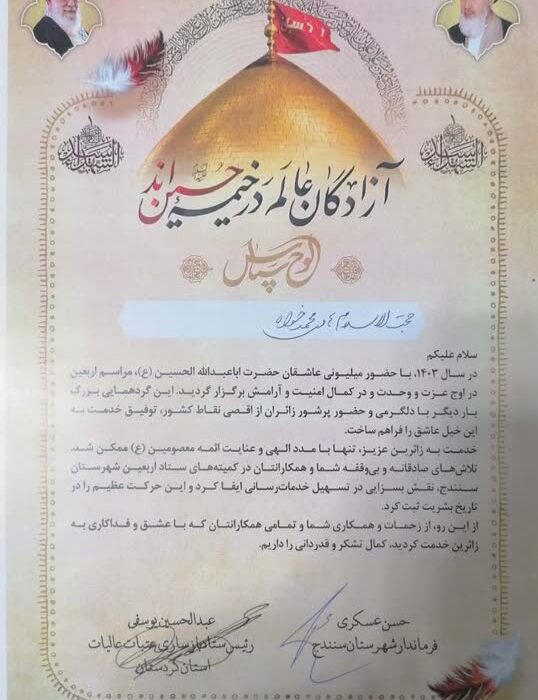 یا اباعبدالله
السلام علیک یا اباعبدالله
آزادگان عالم در خیمه حسین‌اند
لوح سپاس
حجت الاسلام
سلام علیکم
در سال ۱۴۰۳، با حضور میلیونی عاشقان حضرت اباعبدالله الحسین (ع)، مراسم اربعین
در اوج عزت و وحدت و در کمال امنیت و آرامش برگزار گردید. این گردهمایی بزرگ
بار دیگر با دلگرمی و حضور پرشور زائران از اقصی نقاط کشور، توفیق خدمت به
این خیل عاشق را فراهم ساخت.
خدمت به زائرین عزیز، تنها با مدد الهی و عنایت ائمه معصومین (ع) ممکن شد.
تلاش‌های صادقانه و بی‌وقفه شما و همکارانتان در کمیته‌های ستاد اربعین شهرستان
سنندج، نقش بسزایی در تسهیل خدمات‌رسانی ایفا کرد و این حرکت عظیم را در
تاریخ بشریت ثبت کرد.
از این رو، از زحمات و همکاری شما و تمامی همکارانتان که با عشق و فداکاری به
زائرین خدمت کردید، کمال تشکر و قدردانی را داریم.
حسن عسکری
فرماندار شهرستان سنندج
عبدالحسین یوسفی
رئیس ستاد بازسازی عتبات عالیات
استان کردستان